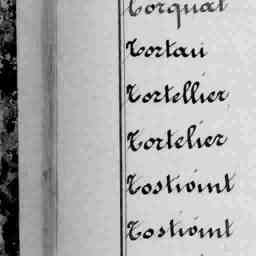 Torquat
Tortau
Tortellier
Tortelier
Tostivint
Tostivint